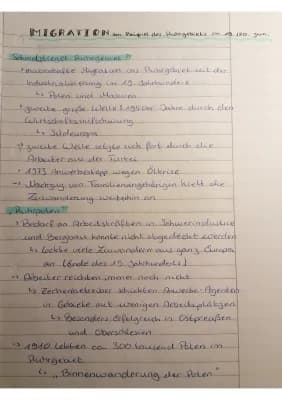 MIGRATION am Beispiel des Ruhrgebiets im 19./20. Jhr.
Schmelztiegel Ruhrgebiet?
- massenhafte Migration ins Ruhrgebiet mit der
Industrialisierung im 19. Jahrhundert
↳ Polen und Masuren
- zweite große Welle 1950er Jahre durch den
Wirtschaftsaufschwung
↳ Südeuropa
zweite Welle setzte sich fort durch die
Arbeiter aus der Türkei
- 1973 Anwerbestopp wegen Ölkrise
- Nachzug von Familienangehörigen hielt die
Zuwanderung weiterhin an
"Ruhrpolen"
- Bedarf an Arbeitskräften in Schwerindustrie
und Bergbau konnte nicht abgedeckt werden
↳ lockte viele Zuwanderer aus ganz Europa
an (Ende des 19. Jahrhunderts)
- Arbeiter reichten immer noch nicht
↳ Zechenbetreiber schickten Anwerbe-Agenten
in Gebiete mit wenigen Arbeitsplätzen
↳ Besonders erfolgreich in Ostpreußen
und Oberschlesien
→ 1910 lebten ca. 300 tausend Polen im
Ruhrgebiet
↳ "Binnenwanderung der Polen"